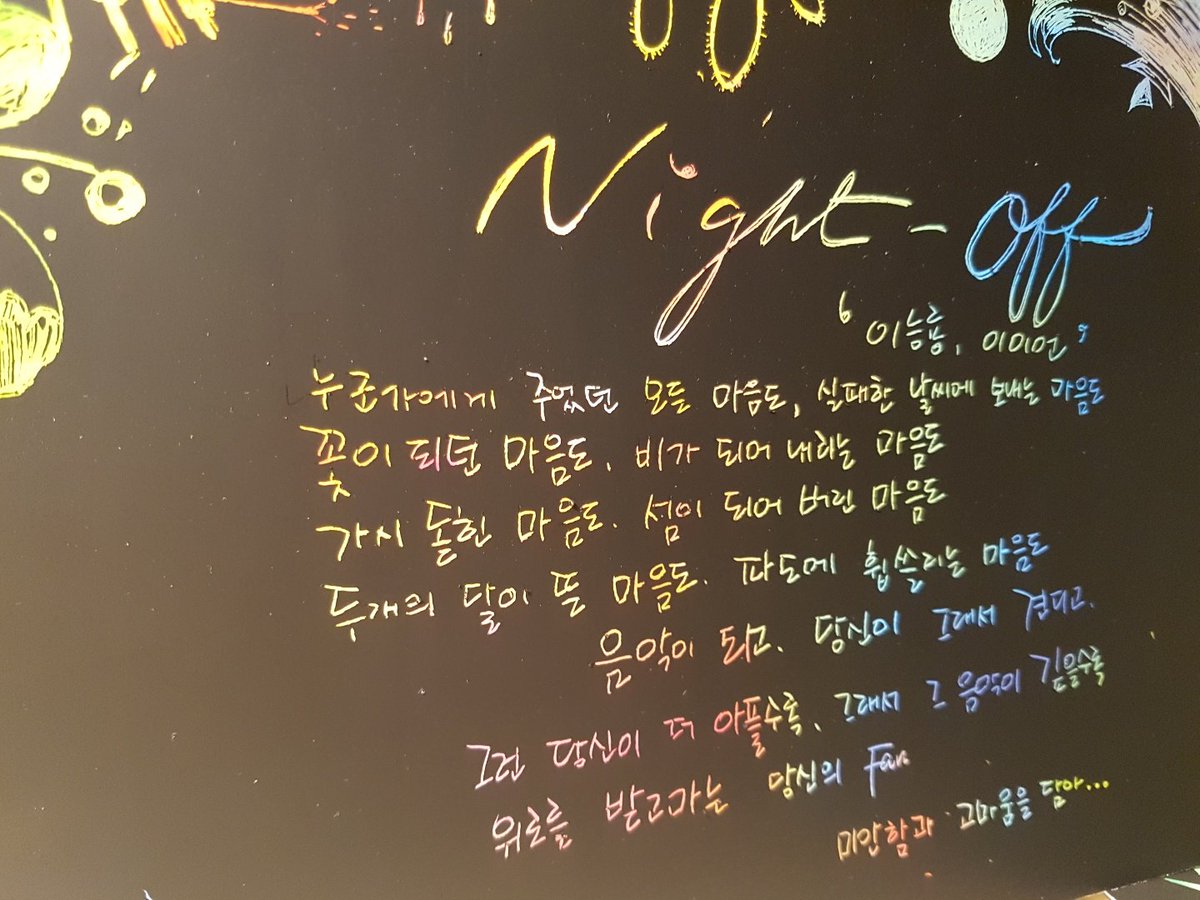 Night-off
'이능룡, 이이언'
누군가에게 주었던 모든 마음도, 실패한 날씨에 보내는 마음도
꽃이 피던 마음도, 비가 되어 내리는 마음도
가시 돋힌 마음도. 섬이 되어 버린 마음도
두개의 달이 뜬 마음도. 파도에 휩쓸리는 마음도
음악이 되고. 당신이 그래서 견디고.
그런 당신이 더 아플수록, 그래서 그 음악이 깊을수록
위로를 받고가는 당신의 Fan
미안함과 고마움을 담아...